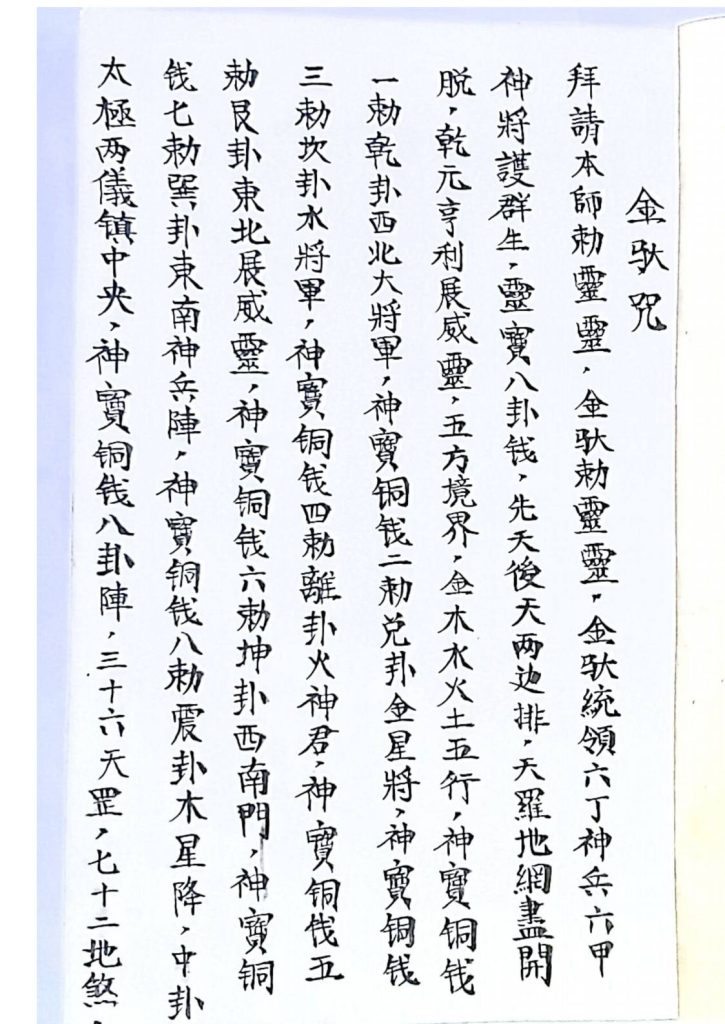 金驮咒
拜請本師勅靈靈，金驮勅靈靈，金驮統領六丁神兵六甲
神將護群生，靈寶八卦钱，先天後天两边排，天羅地網盡開
脱，乾元亨利展威靈，五方境界，金木水火土五行，神寶铜钱
一勅乾卦西北大將軍，神寶铜钱二勅兑卦金星將，神寶铜钱
三勅坎卦水將軍，神寶铜钱四勅離卦火神君，神寶铜钱五
勅艮卦東北展威靈，神寶铜钱六勅坤卦西南門，神寶铜
钱七勅巽卦東南神兵陣，神寶铜钱八勅震卦木星降，中卦
太極两儀镇中央，神寶铜钱八卦陣，三十六天罡，七十二地煞，